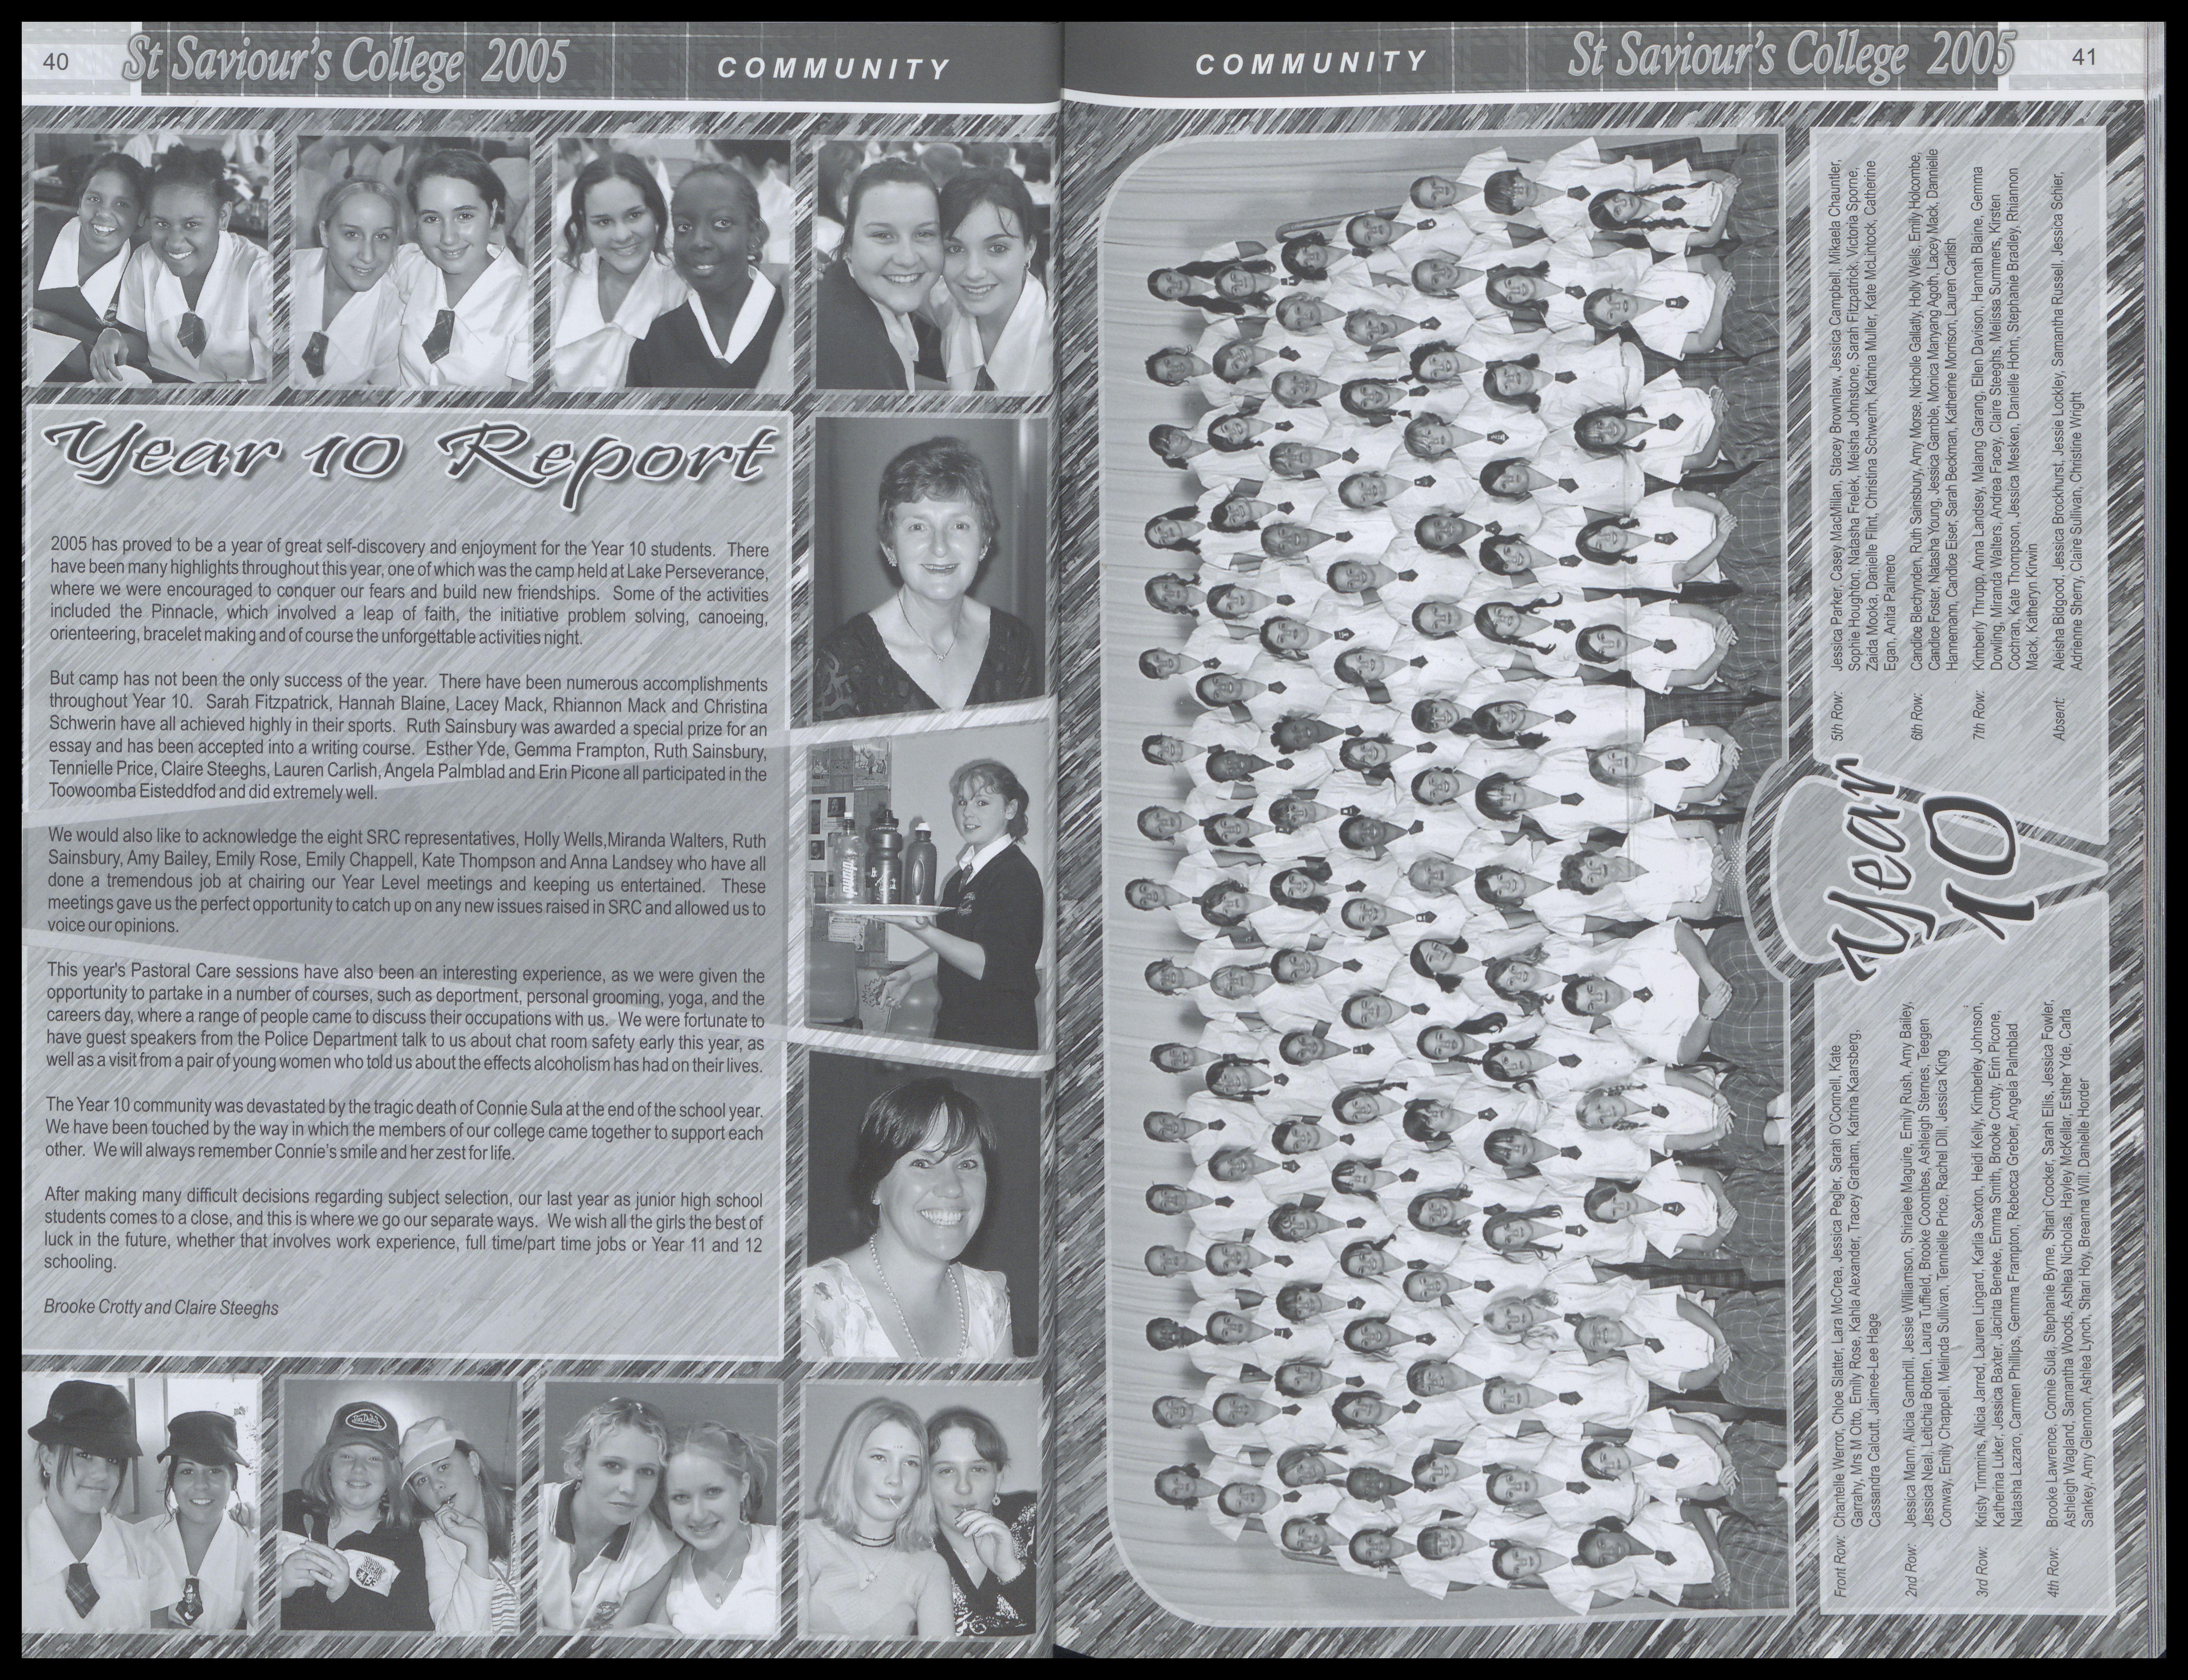 40
St Saviour's College 2005
COMMUNITY
Year 10 Report
2005 has proved to be a year of great self-discovery and enjoyment for the Year 10 students. There
have been many highlights throughout this year, one of which was the camp held at Lake Perseverance,
where we were encouraged to conquer our fears and build new friendships. Some of the activities
included the Pinnacle, which involved a leap of faith, the initiative problem solving, canoeing,
orienteering, bracelet making and of course the unforgettable activities night.
But camp has not been the only success of the year. There have been numerous accomplishments
throughout Year 10. Sarah Fitzpatrick, Hannah Blaine, Lacey Mack, Rhiannon Mack and Christina
Schwerin have all achieved highly in their sports. Ruth Sainsbury was awarded a special prize for an
essay and has been accepted into a writing course. Esther Yde, Gemma Frampton, Ruth Sainsbury,
Tennielle Price, Claire Steeghs, Lauren Carlish, Angela Palmblad and Erin Picone all participated in the
Toowoomba Eisteddfod and did extremely well.
We would also like to acknowledge the eight SRC representatives, Holly Wells,Miranda Walters, Ruth
Sainsbury, Amy Bailey, Emily Rose, Emily Chappell, Kate Thompson and Anna Landsey who have all
done a tremendous job at chairing our Year Level meetings and keeping us entertained. These
meetings gave us the perfect opportunity to catch up on any new issues raised in SRC and allowed us to
voice our opinions.
This year's Pastoral Care sessions have also been an interesting experience, as we were given the
opportunity to partake in a number of courses, such as deportment, personal grooming, yoga, and the
careers day, where a range of people came to discuss their occupations with us. We were fortunate to
have guest speakers from the Police Department talk to us about chat room safety early this year, as
well as a visit from a pair of young women who told us about the effects alcoholism has had on their lives.
The Year 10 community was devastated by the tragic death of Connie Sula at the end of the school year.
We have been touched by the way in which the members of our college came together to support each
other. We will always remember Connie's smile and her zest for life.
After making many difficult decisions regarding subject selection, our last year as junior high school
students comes to a close, and this is where we go our separate ways. We wish all the girls the best of
luck in the future, whether that involves work experience, full time/part time jobs or Year 11 and 12
schooling.
Brooke Crotty and Claire Steeghs
pump
COMMUNITY
St Saviour's College 2005
41
Year
10
Front Row: Chantelle Werror, Chloe Slatter, Lara McCrea, Jessica Pegler, Sarah O'Connell, Kate
Garrahy, Mrs M Otto, Emily Rose, Kahla Alexander, Tracey Graham, Katrina Kaarsberg,
Cassandra Calcutt, Jaimee-Lee Hage
2nd Row: Jessica Mann, Alicia Gambrill, Jessie Williamson, Shiralee Maguire, Emily Rush, Amy Bailey,
Jessica Neal, Letichia Botten, Laura Tuffield, Brooke Coombes, Ashleigh Sternes, Teegen
Conway, Emily Chappell, Melinda Sullivan, Tennielle Price, Rachel Dill, Jessica King
3rd Row: Kristy Timmins, Alicia Jarred, Lauren Lingard, Karlia Sexton, Heidi Kelly, Kimberley Johnson,
Katherina Luker, Jessica Baxter, Jacinta Beneke, Emma Smith, Brooke Crotty, Erin Picone,
Natasha Lazaro, Carmen Phillips, Gemma Frampton, Rebecca Greber, Angela Palmblad
4th Row: Brooke Lawrence, Connie Sula, Stephanie Byrne, Shari Crocker, Sarah Ellis, Jessica Fowler,
Ashleigh Wagland, Samantha Woods, Ashlea Nicholas, Hayley McKellar, Esther Yde, Carla
Sankey, Amy Glennon, Ashlea Lynch, Shari Hoy, Breanna Will, Danielle Horder
5th Row: Jessica Parker, Casey MacMillan, Stacey Brownlaw, Jessica Campbell, Mikaela Chauntler,
Sophie Houghton, Natasha Frelek, Meisha Johnstone, Sarah Fitzpatrick, Victoria Sporne,
Zaida Mooka, Danielle Flint, Christina Schwerin, Katrina Muller, Kate McLintock, Catherine
Egan, Anita Palmero
6th Row: Candice Blechynden, Ruth Sainsbury, Amy Morse, Nicholle Gallatly, Holly Wells, Emily Holcombe,
Candice Foster, Natasha Young, Jessica Gamble, Monica Manyang Agoth, Lacey Mack, Dannielle
Hannemann, Candice Elser, Sarah Beckman, Katherine Morrison, Lauren Carlish
7th Row: Kimberly Thrupp, Anna Landsey, Malang Garang, Ellen Davison, Hannah Blaine, Gemma
Dowling, Miranda Walters, Andrea Facey, Claire Steeghs, Melissa Summers, Kirsten
Cochran, Kate Thompson, Jessica Mesken, Danielle Hohn, Stephanie Bradley, Rhiannon
Mack, Katheryn Kirwin
Absent: Aleisha Bidgood, Jessica Brockhurst, Jessie Lockley, Samantha Russell, Jessica Schier,
Adrienne Sherry, Claire Sullivan, Christine Wright